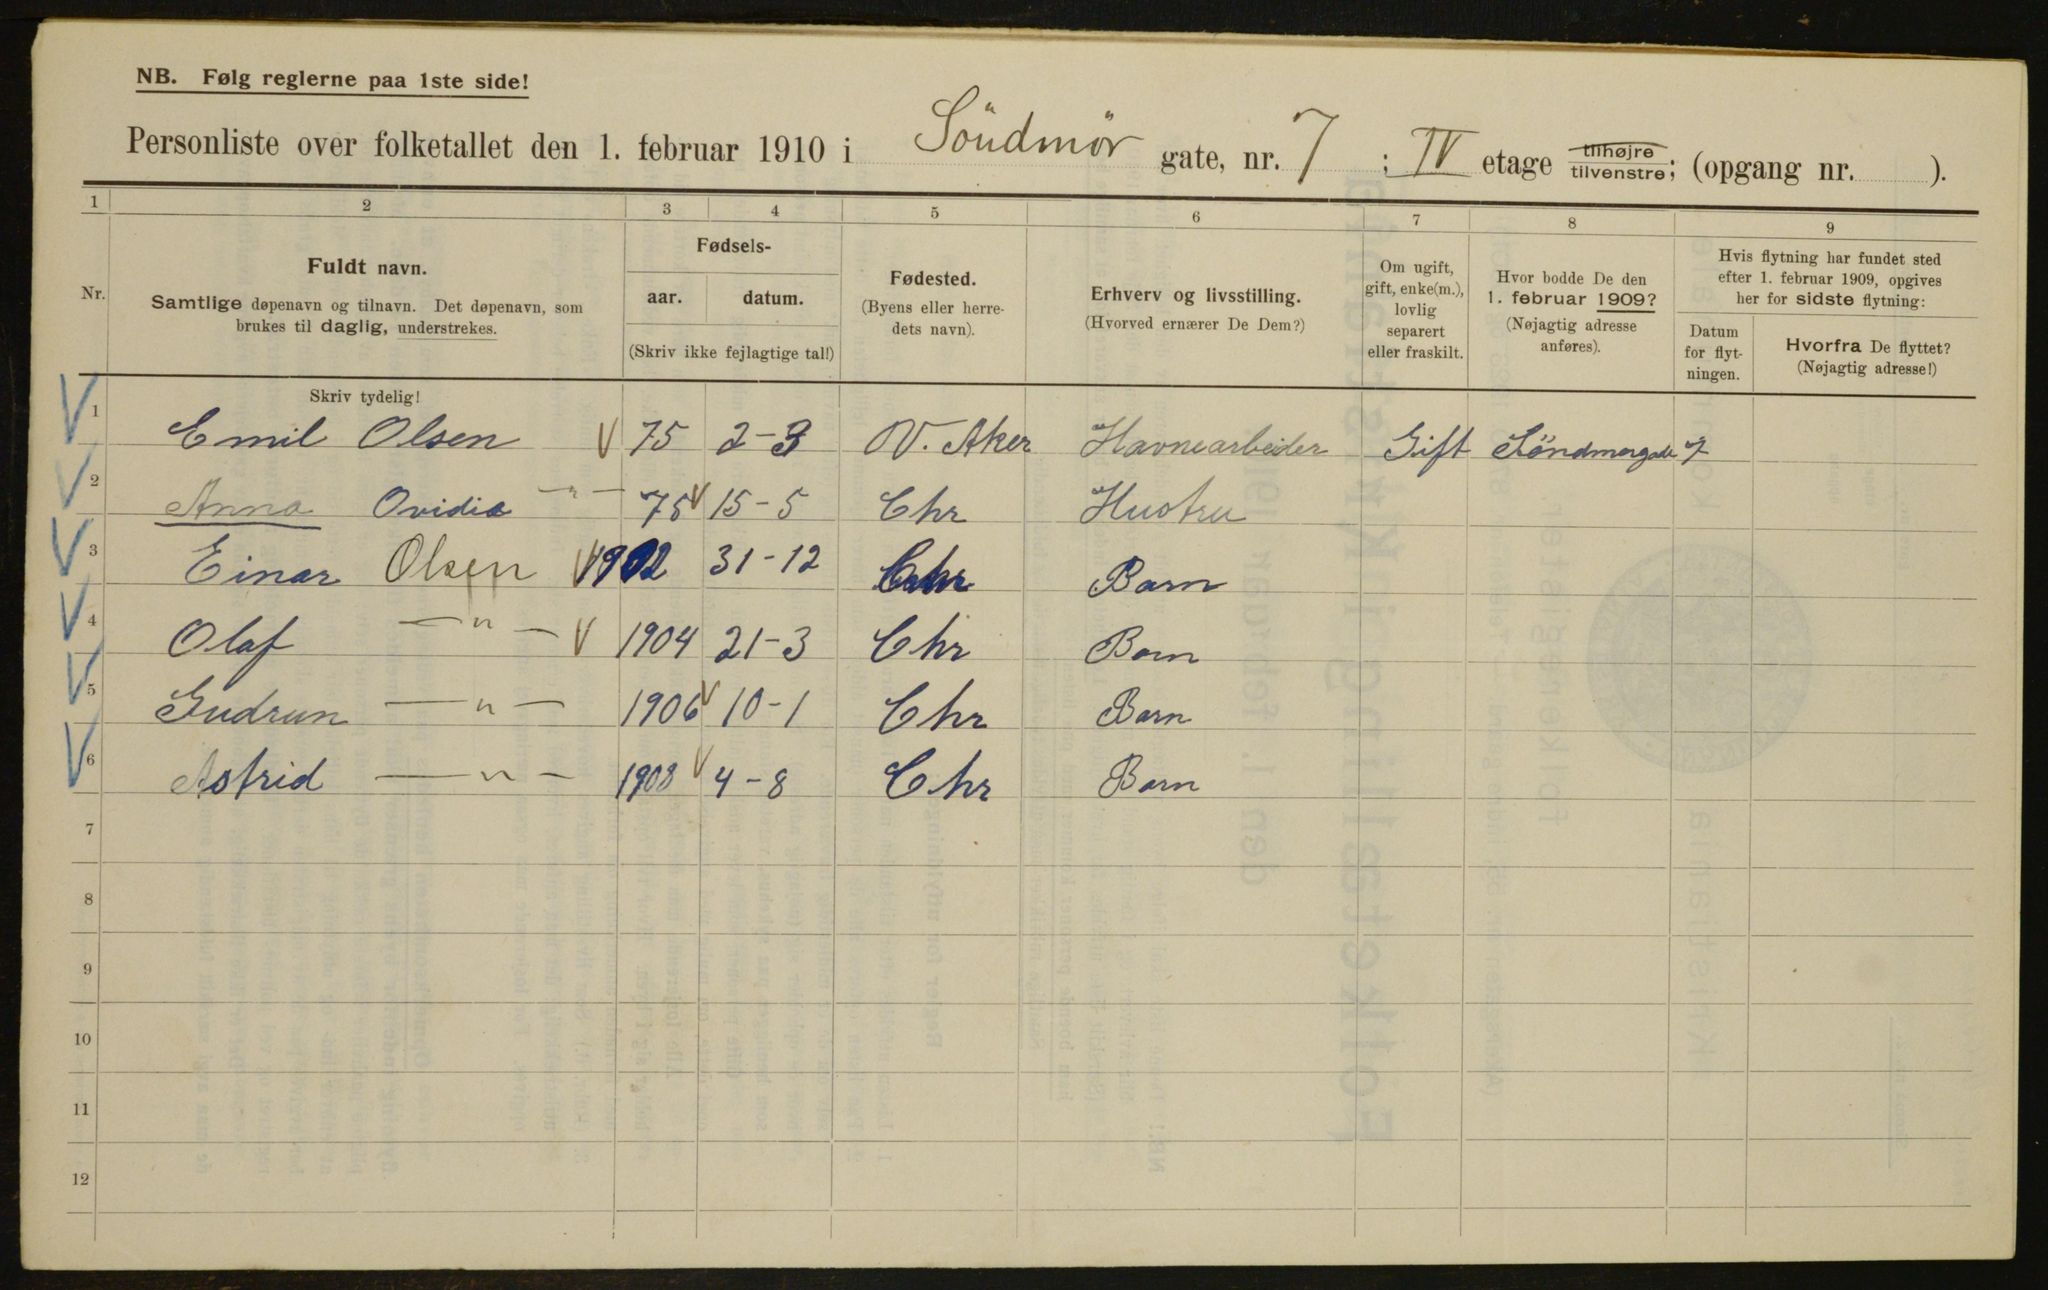 NB. Følg reglerne paa 1ste side!
Personliste over folketallet den 1. februar 1910 i Söndmör gate, nr. 7 ; IV etage tilhøjre tilvenstre; (opgang nr. ).
1 2 3 4 5 6 7 8 9
Nr.
Fuldt navn.
Samtlige døpenavn og tilnavn. Det døpenavn, som
brukes til daglig, understrekes.
Fødsels-
aar. datum.
(Skriv ikke fejlagtige tal!)
Fødested.
(Byens eller herre-
dets navn).
Erhverv og livsstilling.
(Hvorved ernærer De Dem?)
Om ugift,
gift, enke(m.),
lovlig
separert
eller fraskilt.
Hvor bodde De den
1. februar 1909?
(Nøjagtig adresse
anføres).
Hvis flytning har fundet sted
efter 1. februar 1909, opgives
her for sidste flytning:
Datum
for flyt-
ningen.
Hvorfra De flyttet?
(Nøjagtig adresse!)
Skriv tydelig!
1 Emil Olsen 75 2-3 V. Aker Havnearbeider Gift Söndmørgade 7
2 Anna Ovidia —"— 75 15-5 Chr Hustru
3 Einar Olsen 1902 31-12 Chr Barn
4 Olaf —"— 1904 21-3 Chr Barn
5 Gudrun —"— 1906 10-1 Chr Barn
6 Astrid —"— 1908 4-8 Chr Barn
7
8
9
10
11
12